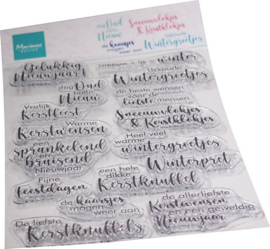 Marianne
Oud
Nieuw
Sneeuwvlokjes
& Kerstklokjes
de kaarsjes
mogen
weer aan
Wintergroetjes
Gelukkig
Nieuwjaar!
winter
Wintergroetjes
van
Oud
Nieuw
de beste wensen
voor de leukste
mensen
Vrolijk
Kerstfeest
Sneeuwvlokjes
& Kerstklokjes
Warme
Kerstwensen
Heel veel
warme
wintergroetjes
sprankelend
bruisend
Nieuwjaar
Winterpret
Fijne
feestdagen
een hele
dikke
Kerstknuffel
de kaarsjes
mogen
weer aan
de allerliefste
Kerstwensen
en een geweldig
Nieuwjaar
De liefste
Kerstknuffels